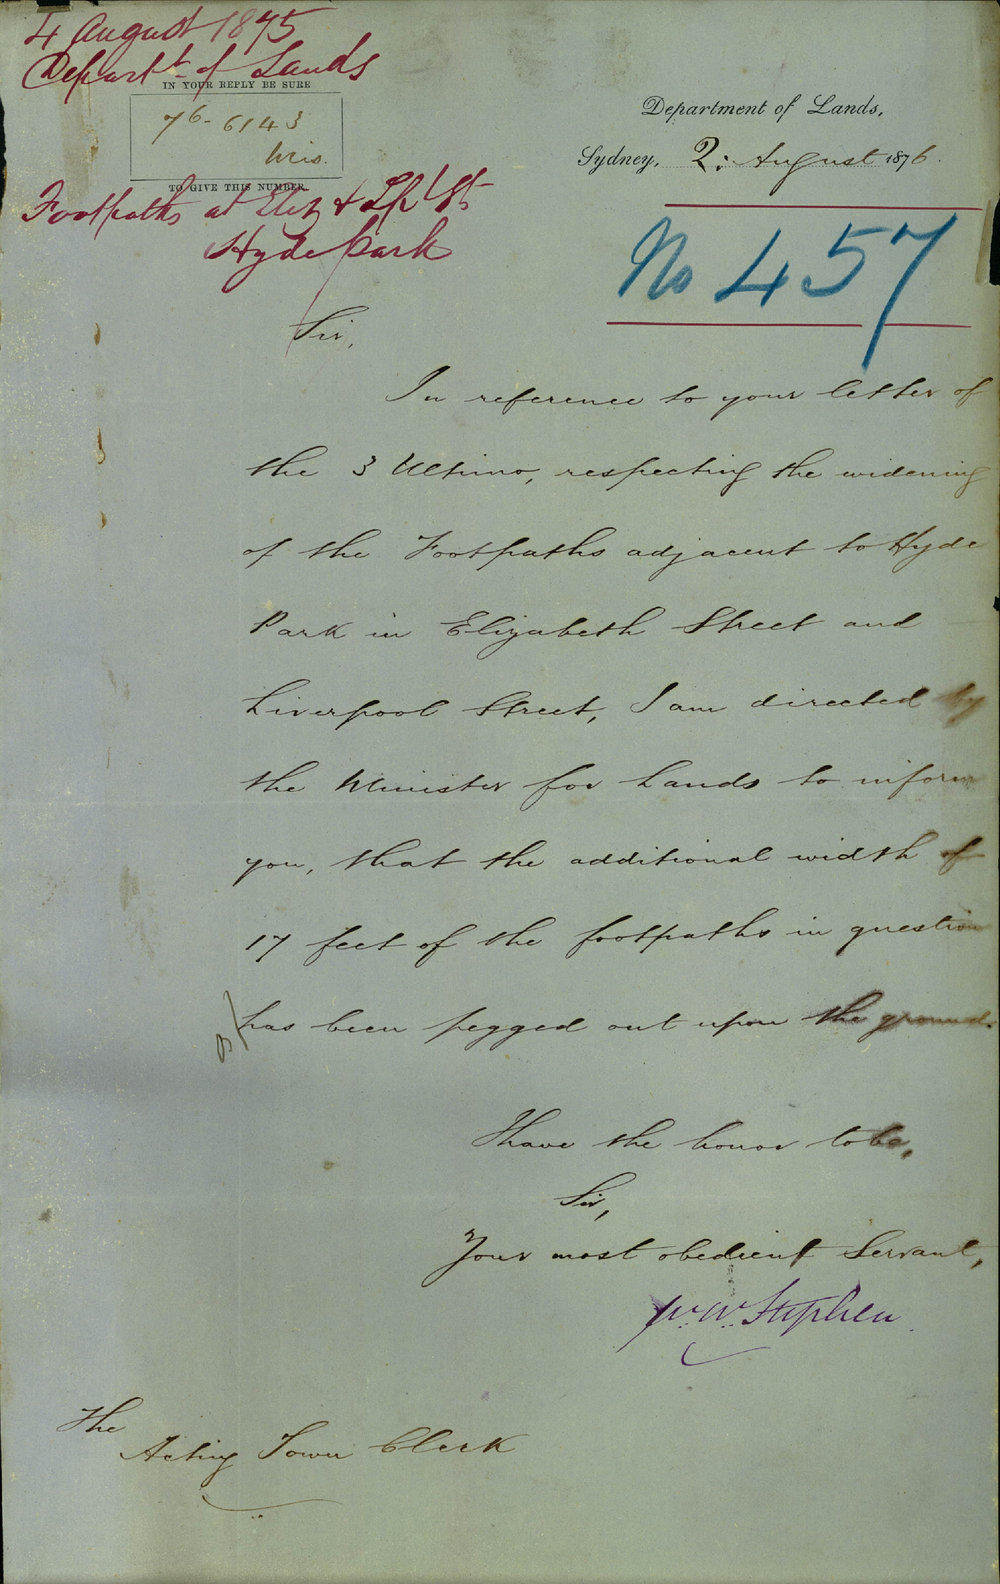 4 August 1875
Departt of Lands
IN YOUR REPLY BE SURE
76-6143
Mis.
TO GIVE THIS NUMBER
Footpaths at Eliz & Lpl Sts
Hyde Park
Department of Lands,
Sydney, 2: August 1876.
No 457
Sir,
In reference to your letter of
the 3 Ultimo, respecting the widening
of the Footpaths adjacent to Hyde
Park in Elizabeth Street and
Liverpool Street, I am directed by
the Minister for Lands to inform
you, that the additional width of
17 feet of the footpaths in question
has been pegged out upon the ground.
I have the honor to be,
Sir,
Your most obedient Servant,
W. W. Stephen
The
Acting Town Clerk